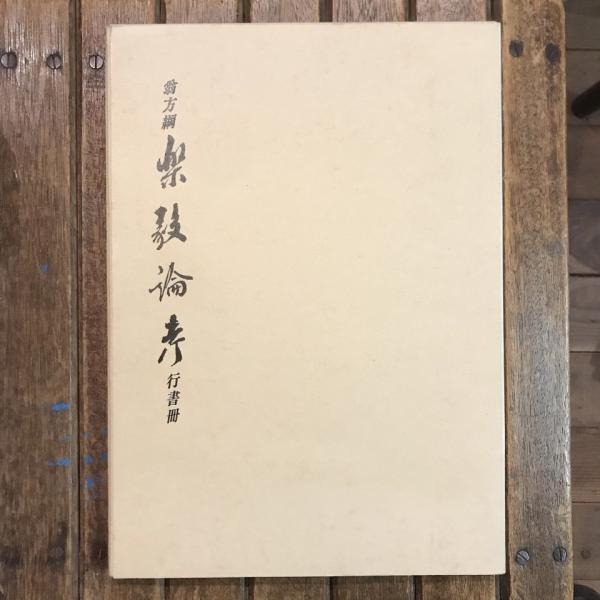 翁方綱 楽毅論考 行書冊